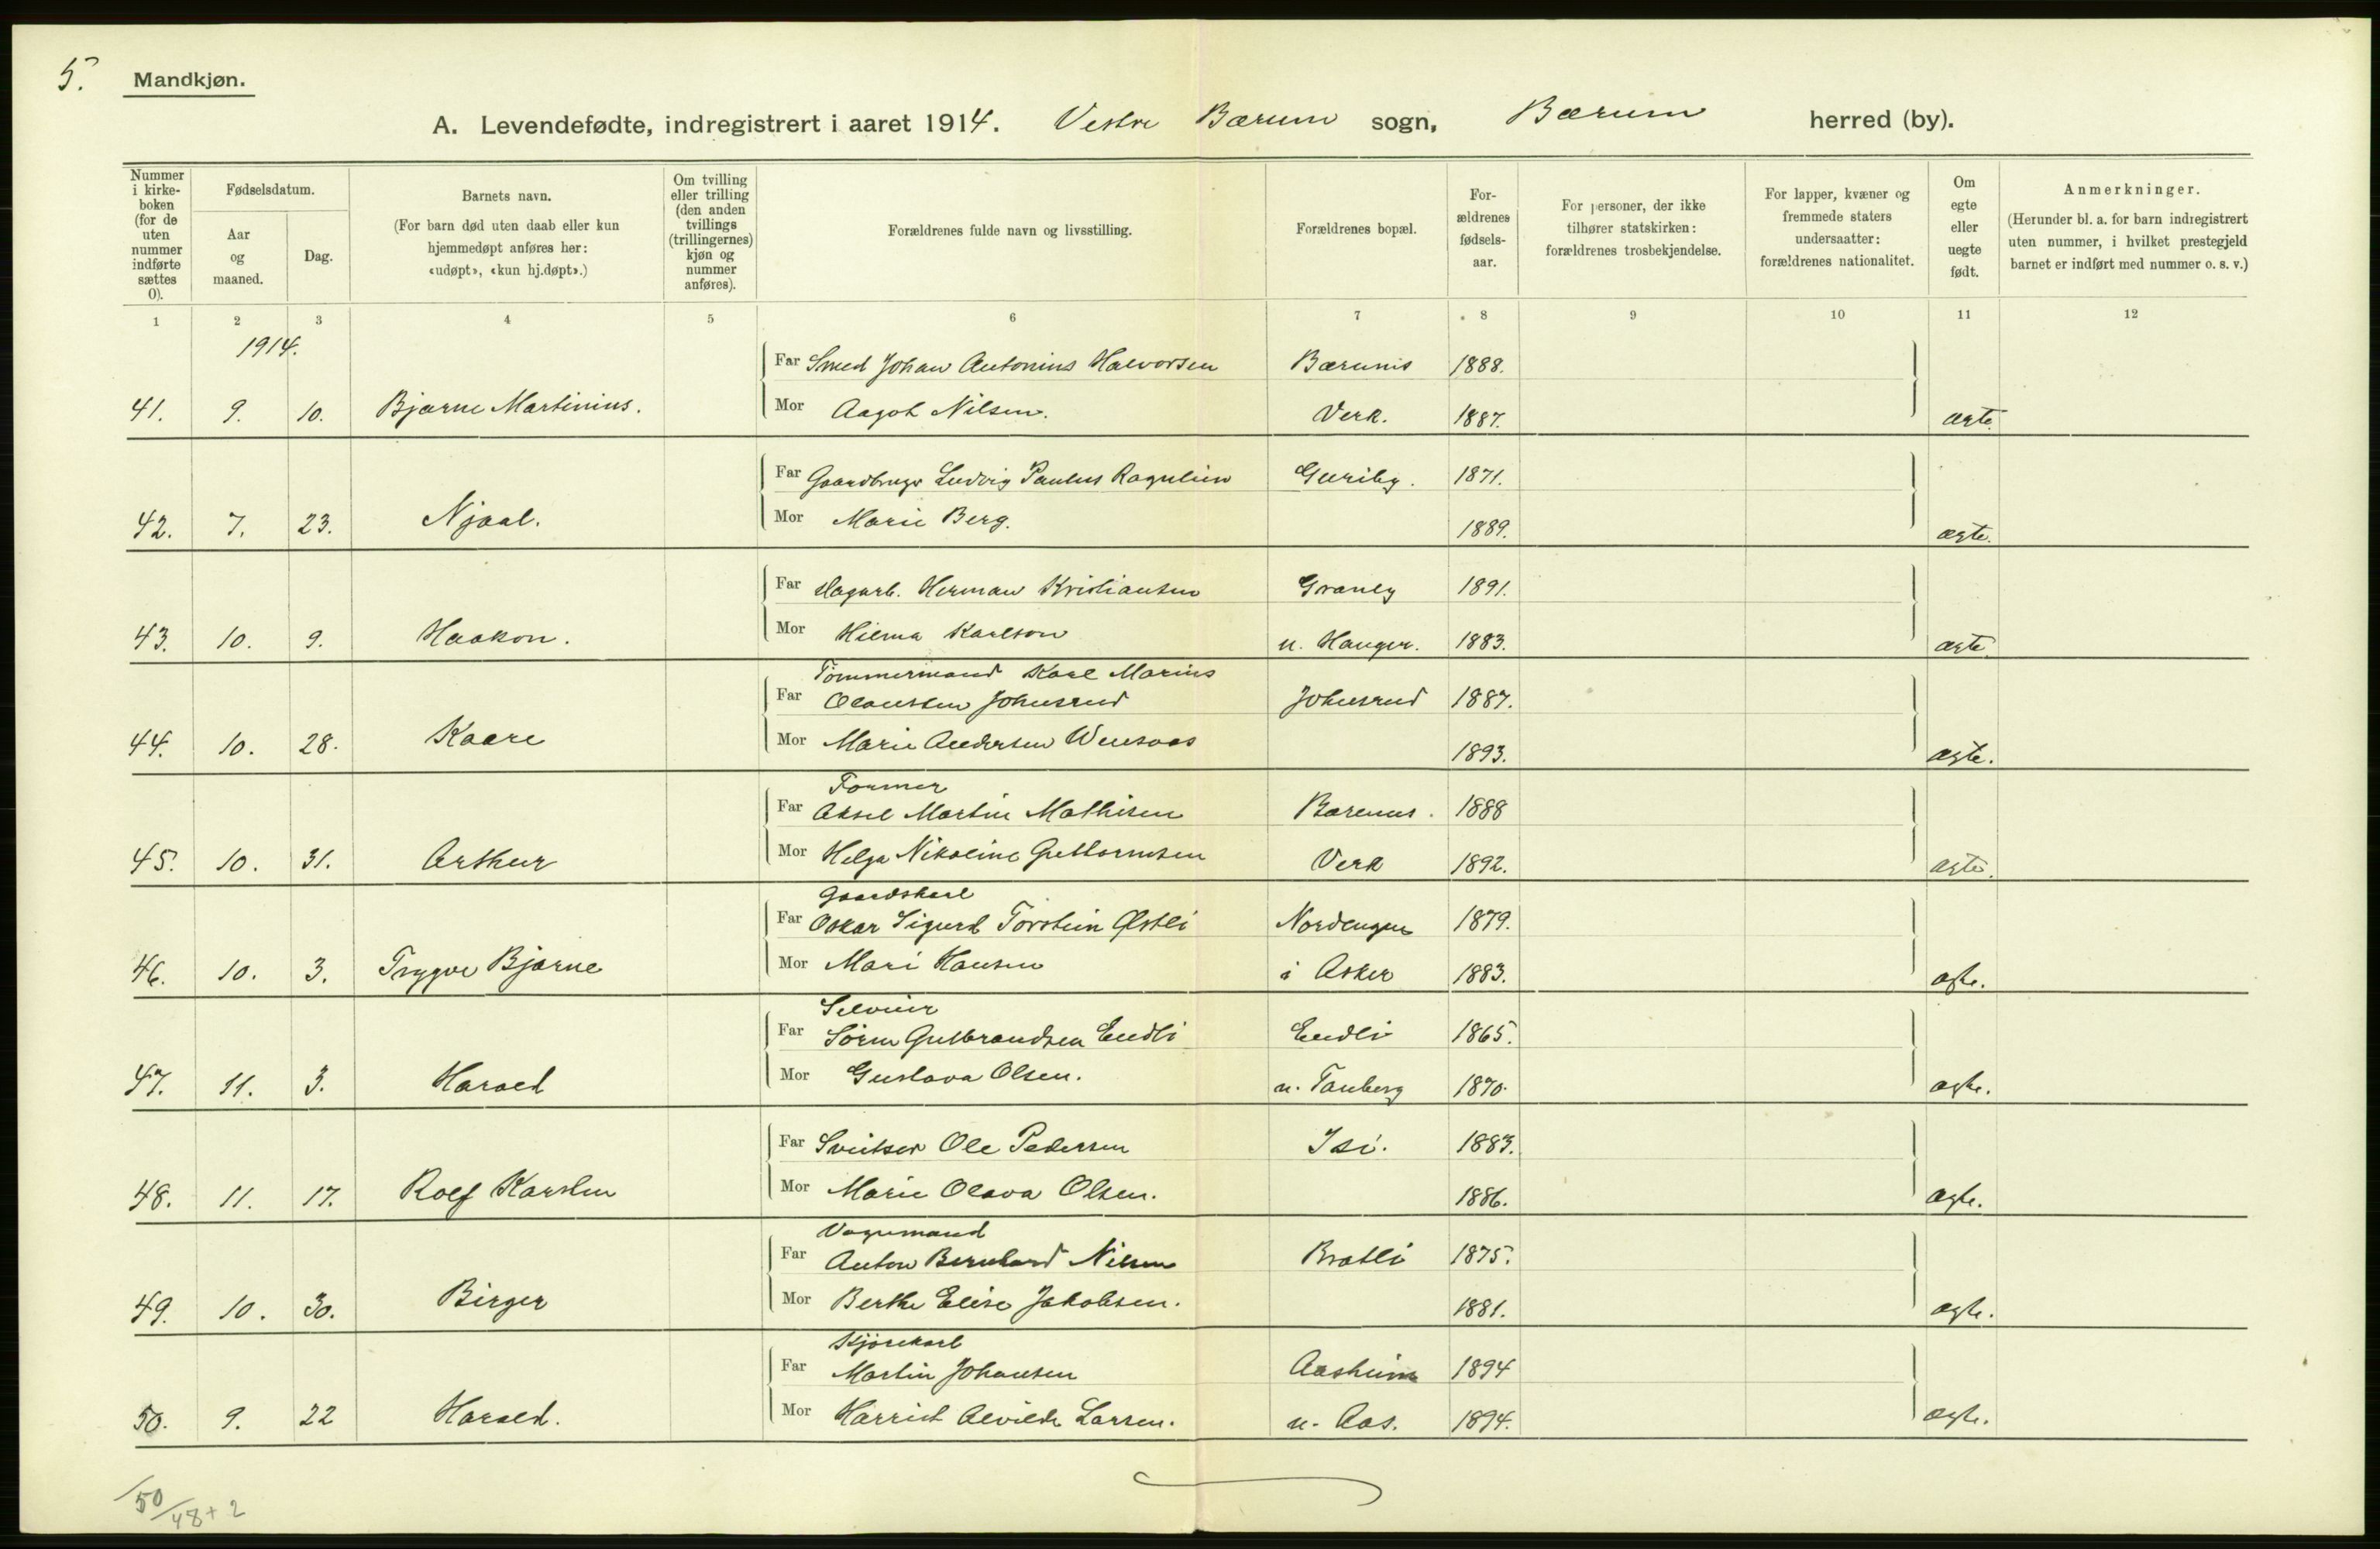 5.
Mandkjøn.
A. Levendefødte, indregistrert i aaret 1914. Vestre Bærum sogn, Bærum herred (by).
Nummer i kirke-boken (for de uten nummer indførte sættes 0).
Fødselsdatum.
Aar og maaned.
Dag.
Barnets navn.
(For barn død uten daab eller kun hjemmedøpt anføres her: «udøpt», «kun hj.døpt».)
Om tvilling eller trilling (den anden tvillings (trillingernes) kjøn og nummer anføres).
Forældrenes fulde navn og livsstilling.
Forældrenes bopæl.
For-ældrenes fødsels-aar.
For personer, der ikke tilhører statskirken: forældrenes trosbekjendelse.
For lapper, kvæner og fremmede staters undersaatter: forældrenes nationalitet.
Om egte eller uegte født.
Anmerkninger.
(Herunder bl. a. for barn indregistrert uten nummer, i hvilket prestegjeld barnet er indført med nummer o. s. v.)
1 2 3 4 5 6 7 8 9 10 11 12
1914.
Far Smed Johan Antonius Halvorsen Bærums 1888.
41. 9. 10. Bjarne Martinius. Mor Aagot Nilsen. Verk. 1887. ægte.
Far Gaardbruger Ludvig Paulus Ragnlien Guriby. 1871.
42. 7. 23. Njaal. Mor Marie Berg. 1889. ægte.
Far Dagarb. Herman Kristiansen Granly 1891.
43. 10. 9. Haakon. Mor Hilma Karlson u. Hauger. 1883. ægte
Tømmermand Karl Marius
Far Olaussen Johnsrud Johnsrud 1887.
44. 10. 28. Kaare Mor Marie Andersen 1893. ægte.
Former
Far Aksel Martin Mathisen Bærums. 1888
45. 10. 31. Arthur Mor Helga Nikoline Guttormsen Verk 1892. ægte.
Gaardskarl
Far Oskar Sigurd Torstein Østli Nordengen 1879.
46. 10. 3. Trygve Bjarne Mor Mari Hansen i Asker 1883. ægte.
Selveier
Far Søren Gulbrandsen Eudli Eudli 1865.
47. 11. 3. Harald Mor Gustava Olsen. u. Tanberg 1870. ægte.
Far Sveitser Ole Pedersen Isi. 1883.
48. 11. 17. Rolf Karsten Mor Marie Olava Olsen. 1886. ægte.
Vognmand
Far Anton Bernhard Nilsen Bratli 1875.
49. 10. 30. Birger Mor Berthe Elise Jakobsen. 1881. ægte.
Kjørekarl
Far Martin Johansen Aasheim 1894
50. 9. 22 Harald. Mor Harriet Alvilde Larsen. u. Aas. 1894. ægte.
50/48+2